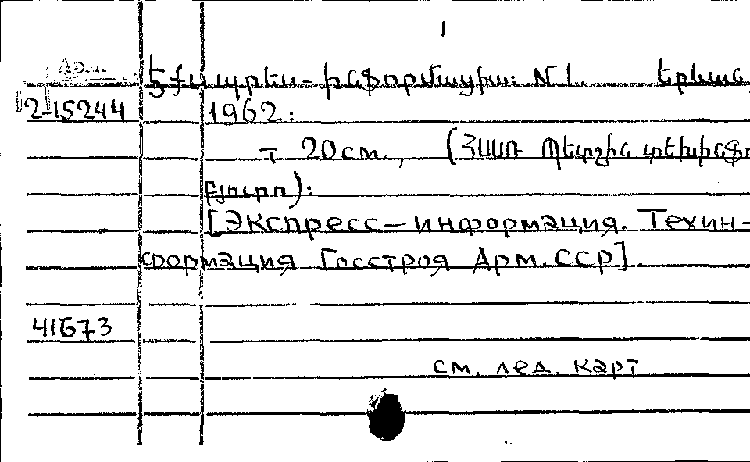 1
Арм.
Էքսպրես-ինֆորմացիա: N 1. Երևան,
2-15244 1962:
т 20см., (ՀՍՍՌ Պետշին տեխինֆո
բյուրո):
[Экспресс-информация. Техин-
формация Госстроя Арм. ССР].
41673
см. лед. карт